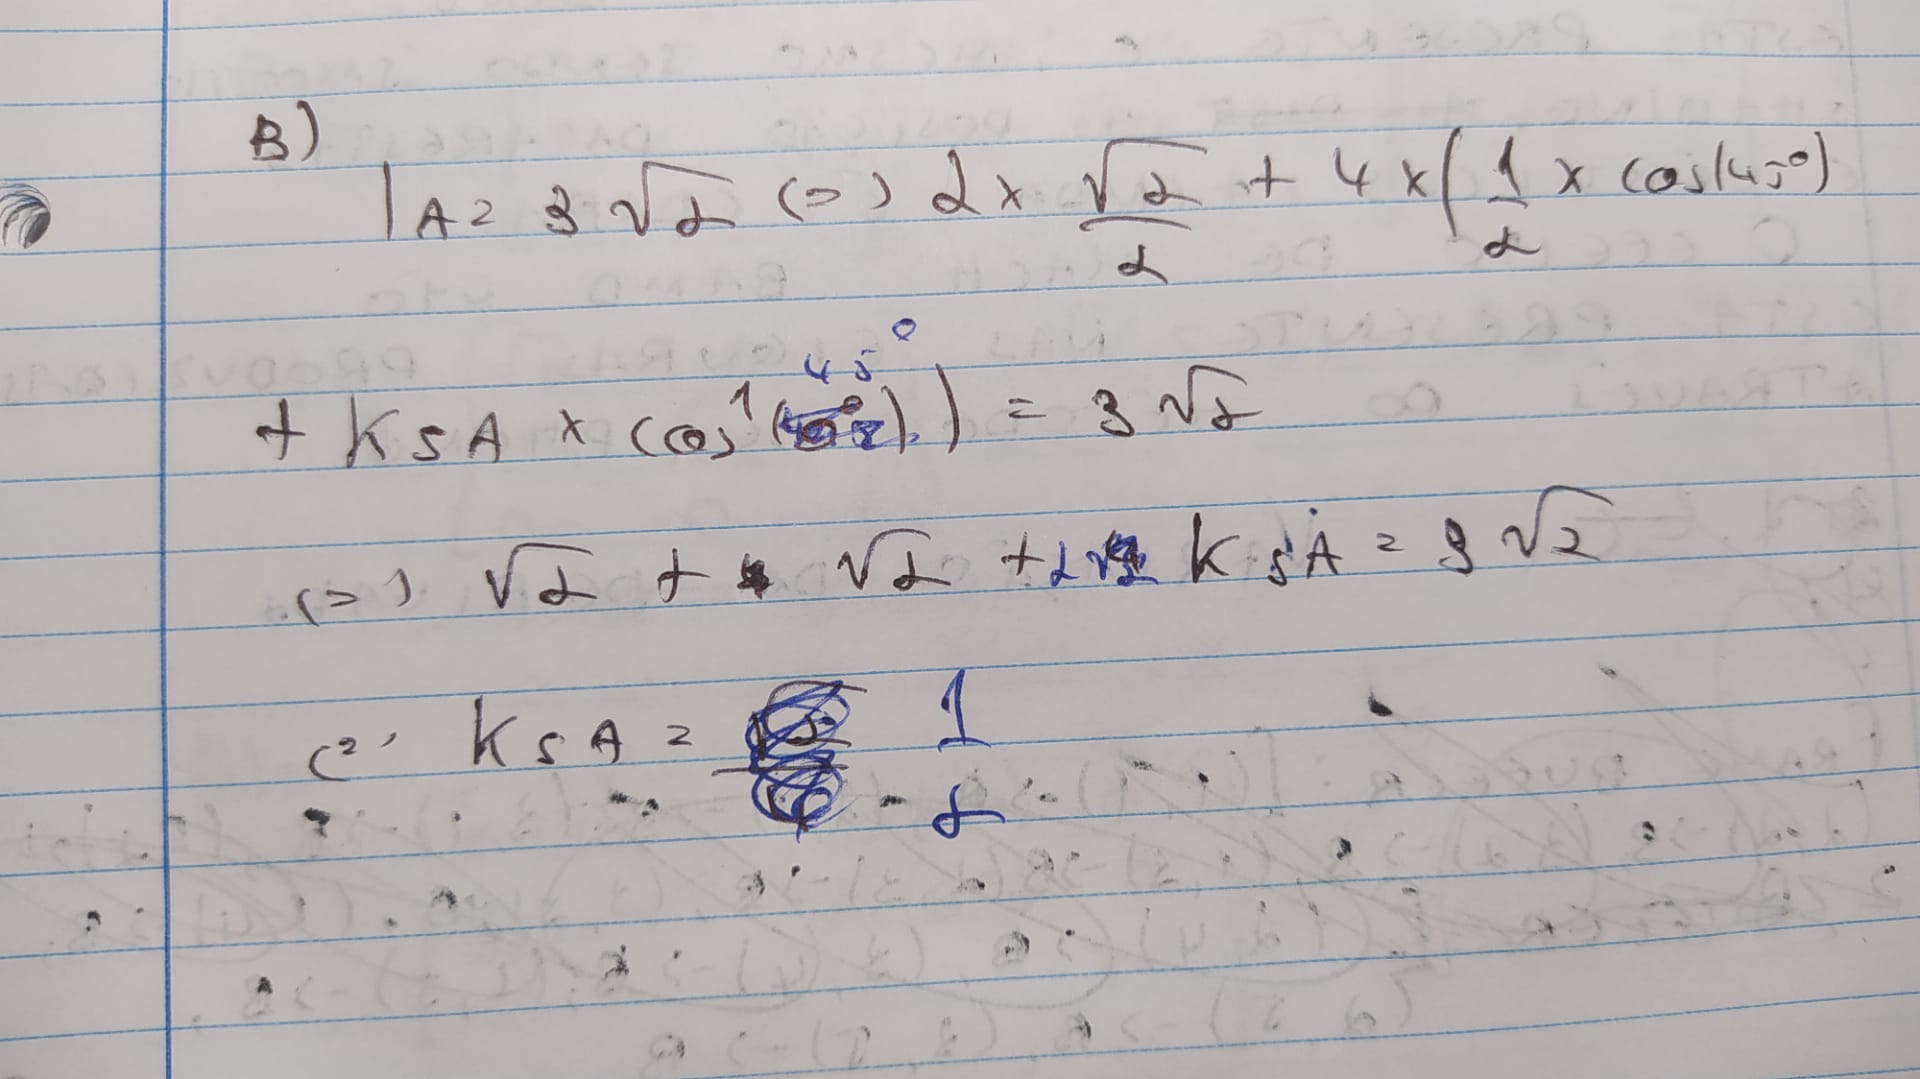 B)
I A = 3 √2 (=) 2 x √2/2 + 4 x ( 1/2 x cos(45°)
+ KSA x cos¹(45°) ) = 3 √2
(=) √2 + √2 + 2√2 KSA = 3 √2
(=) KSA = 1/2